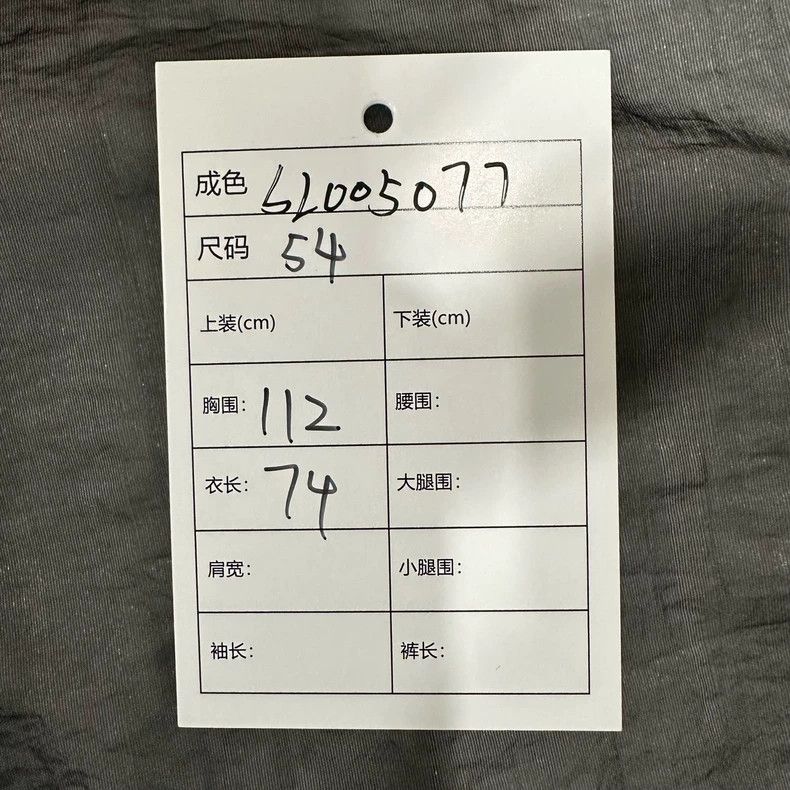 成色 SL005077
尺码 54
上装(cm) 下装(cm)
胸围: 112 腰围:
衣长: 74 大腿围:
肩宽: 小腿围:
袖长: 裤长: